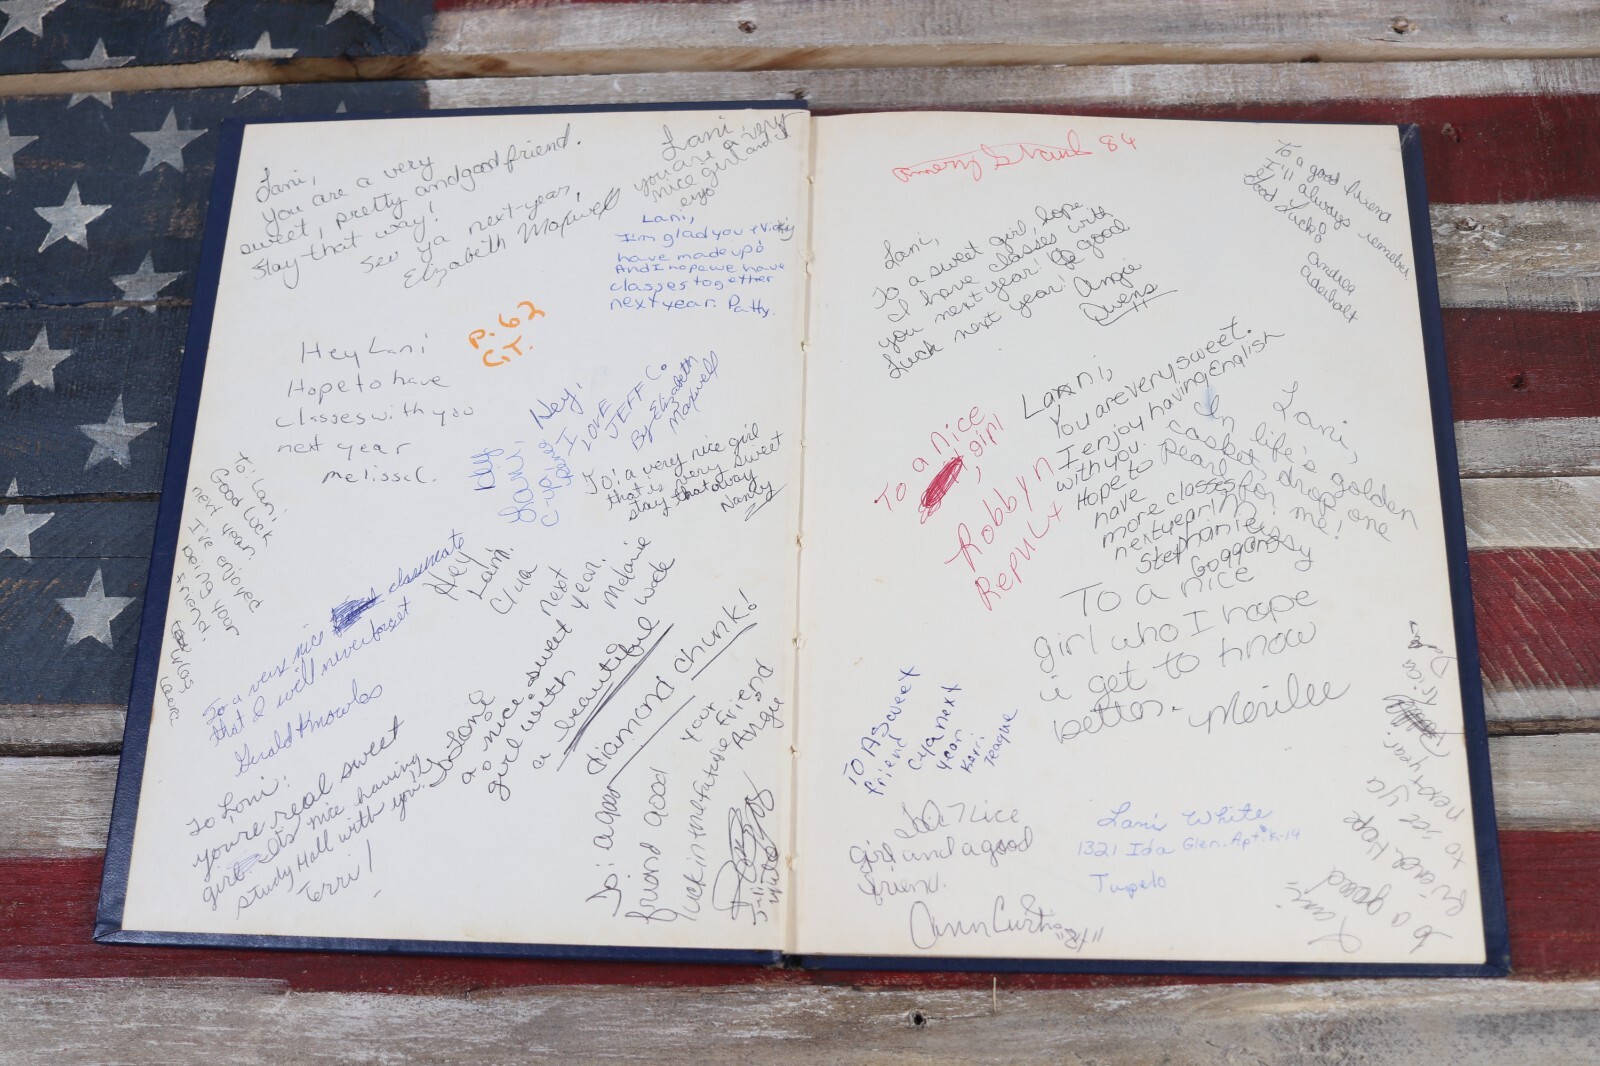 Lani,
You are a very
sweet, pretty and good friend.
Stay that way!
See ya next year,
Elizabeth Maxwell
Lani, very
you are a
nice girl and
Lani,
I'm glad you & Vicky
have made up!
And I hope we have
classes together
next year. Patty.
p. 62
C.T.
Hey Lani
Hope to have
classes with you
next year
Melissa C.
Hey,
I
LOVE
JEFF C.
By Elizabeth
Maxwell
Lani,
To: a very nice girl
that is very sweet
stay that way
Nancy
To: Lani
Good luck
next year
I've enjoyed
being your
friend.
To a very nice classmate
that I will never forget
Gerald Knowles
Hey
Lani.
C'ya
next
year.
Melanie
Wade
To Loni
a nice sweet
girl with
a beautiful
diamond chunk!
To Loni:
you're real sweet
girl. It's nice having
study Hall with you!
Terri!
To: a good
friend good
luck in the future
your
friend
Angie
84
Lani,
To a sweet girl, hope
I have classes with
you next year! Good
luck next year!
Angie
Owens
To a good friend
I'll always remeber
Good Luck!
Andrea
To a nice
girl,
Robbyn
Lani,
You are very sweet.
I enjoy having English
with you.
Hope to
have
more classes
next year
Stephanie
Goggans
Lani,
In life's golden
Casket drop one
Pearl for me!
To a nice
girl who I hope
i get to know
better.
Merilee
To A Sweet
friend
C ya next
year
Keri
Teague
To A Nice
girl and a good
friend.
Ann Curtis
Lani White
1321 Ida Glen. Apt. K-14
Tupelo
Lani
To a good
friend. Hope
to see ya
next year.